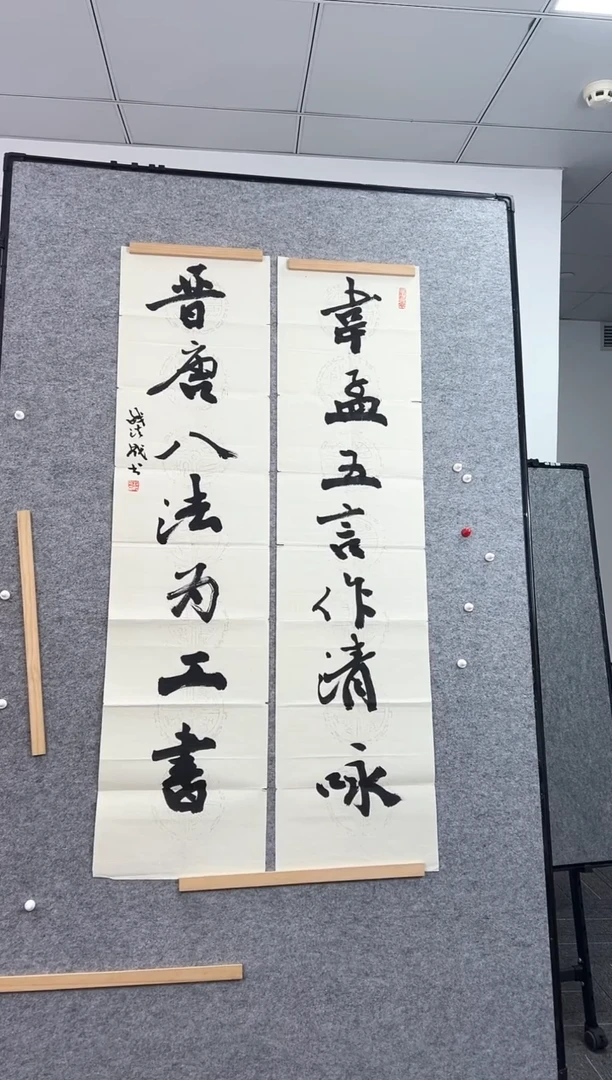 韋孟五言作清咏
晋唐八法为工書